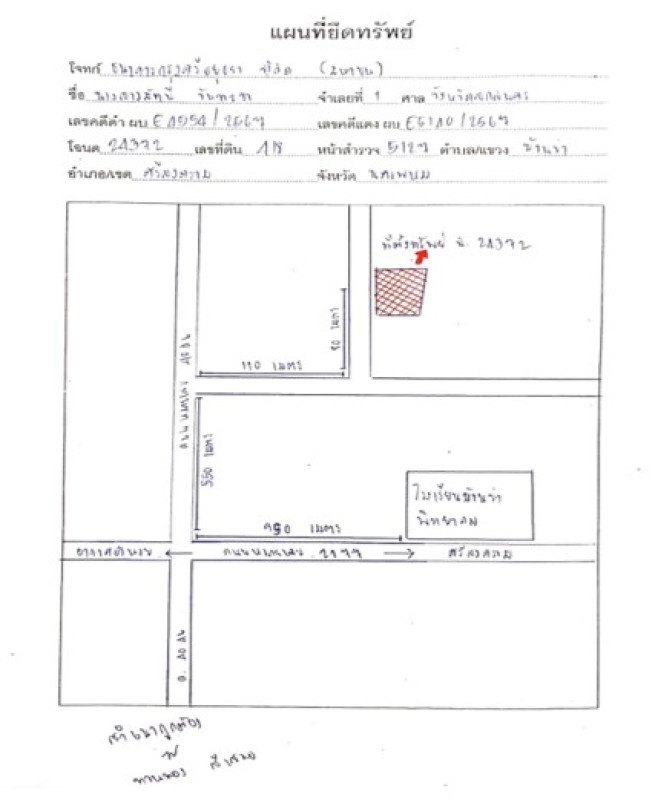 แผนที่ยึดทรัพย์
โจทก์ ธนาคารกรุงศรีอยุธยา จำกัด (มหาชน)
ชื่อ นางสาว จำเลยที่ 1 ศาล จังหวัดสกลนคร
เลขคดีดำ ผบ E1554/2567 เลขคดีแดง ผบ E6120/2567
โฉนด 21372 เลขที่ดิน 118 หน้าสำรวจ 5127 ตำบล/แขวง บ้านข่า
อำเภอ/เขต ศรีสงคราม จังหวัด นครพนม
ที่ตั้งทรัพย์ ฉ. 21372
90 เมตร
110 เมตร
550 เมตร
950 เมตร
โรงเรียนบ้านข่า
พิทยาคม
อากาศอำนวย ถนนหมายเลข ศรีสงคราม
สำเนาถูกต้อง